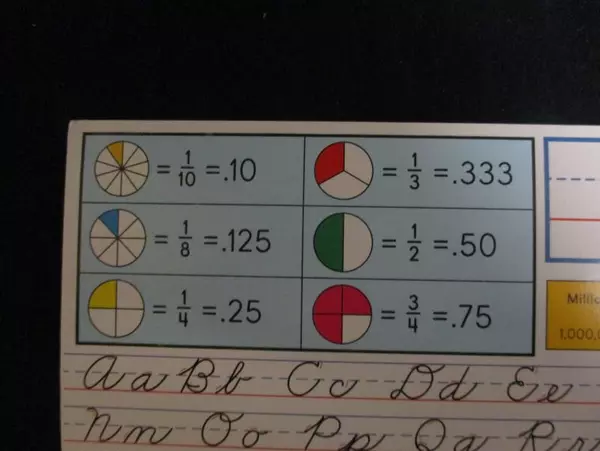 = 1/10 = .10
= 1/3 = .333
= 1/8 = .125
= 1/2 = .50
= 1/4 = .25
= 3/4 = .75
1,000,
Aa Bb Cc Dd Ee
Nn Oo Pp Qq Rr